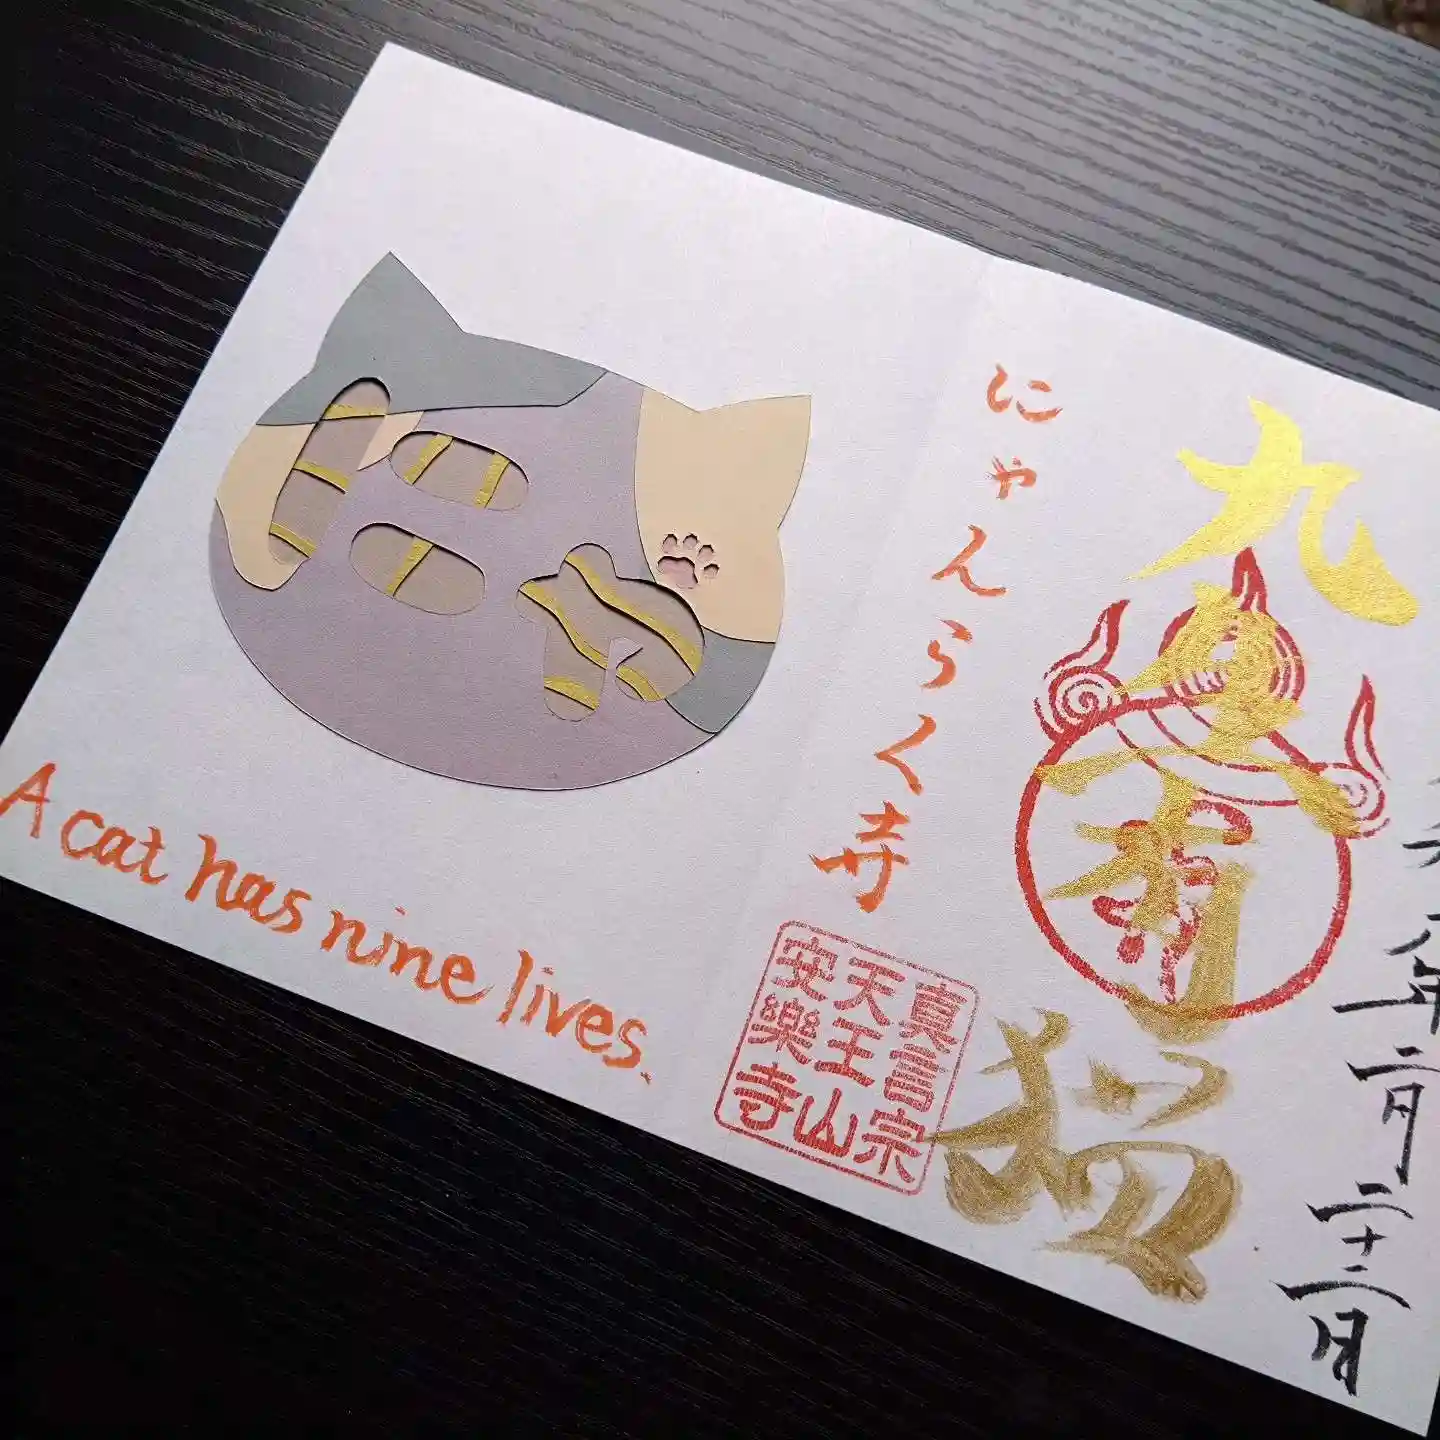 八年二月二十二日
九生有猫
にゃんらく寺
真言宗
天王山
安樂寺
にゃ
A cat has nine lives.